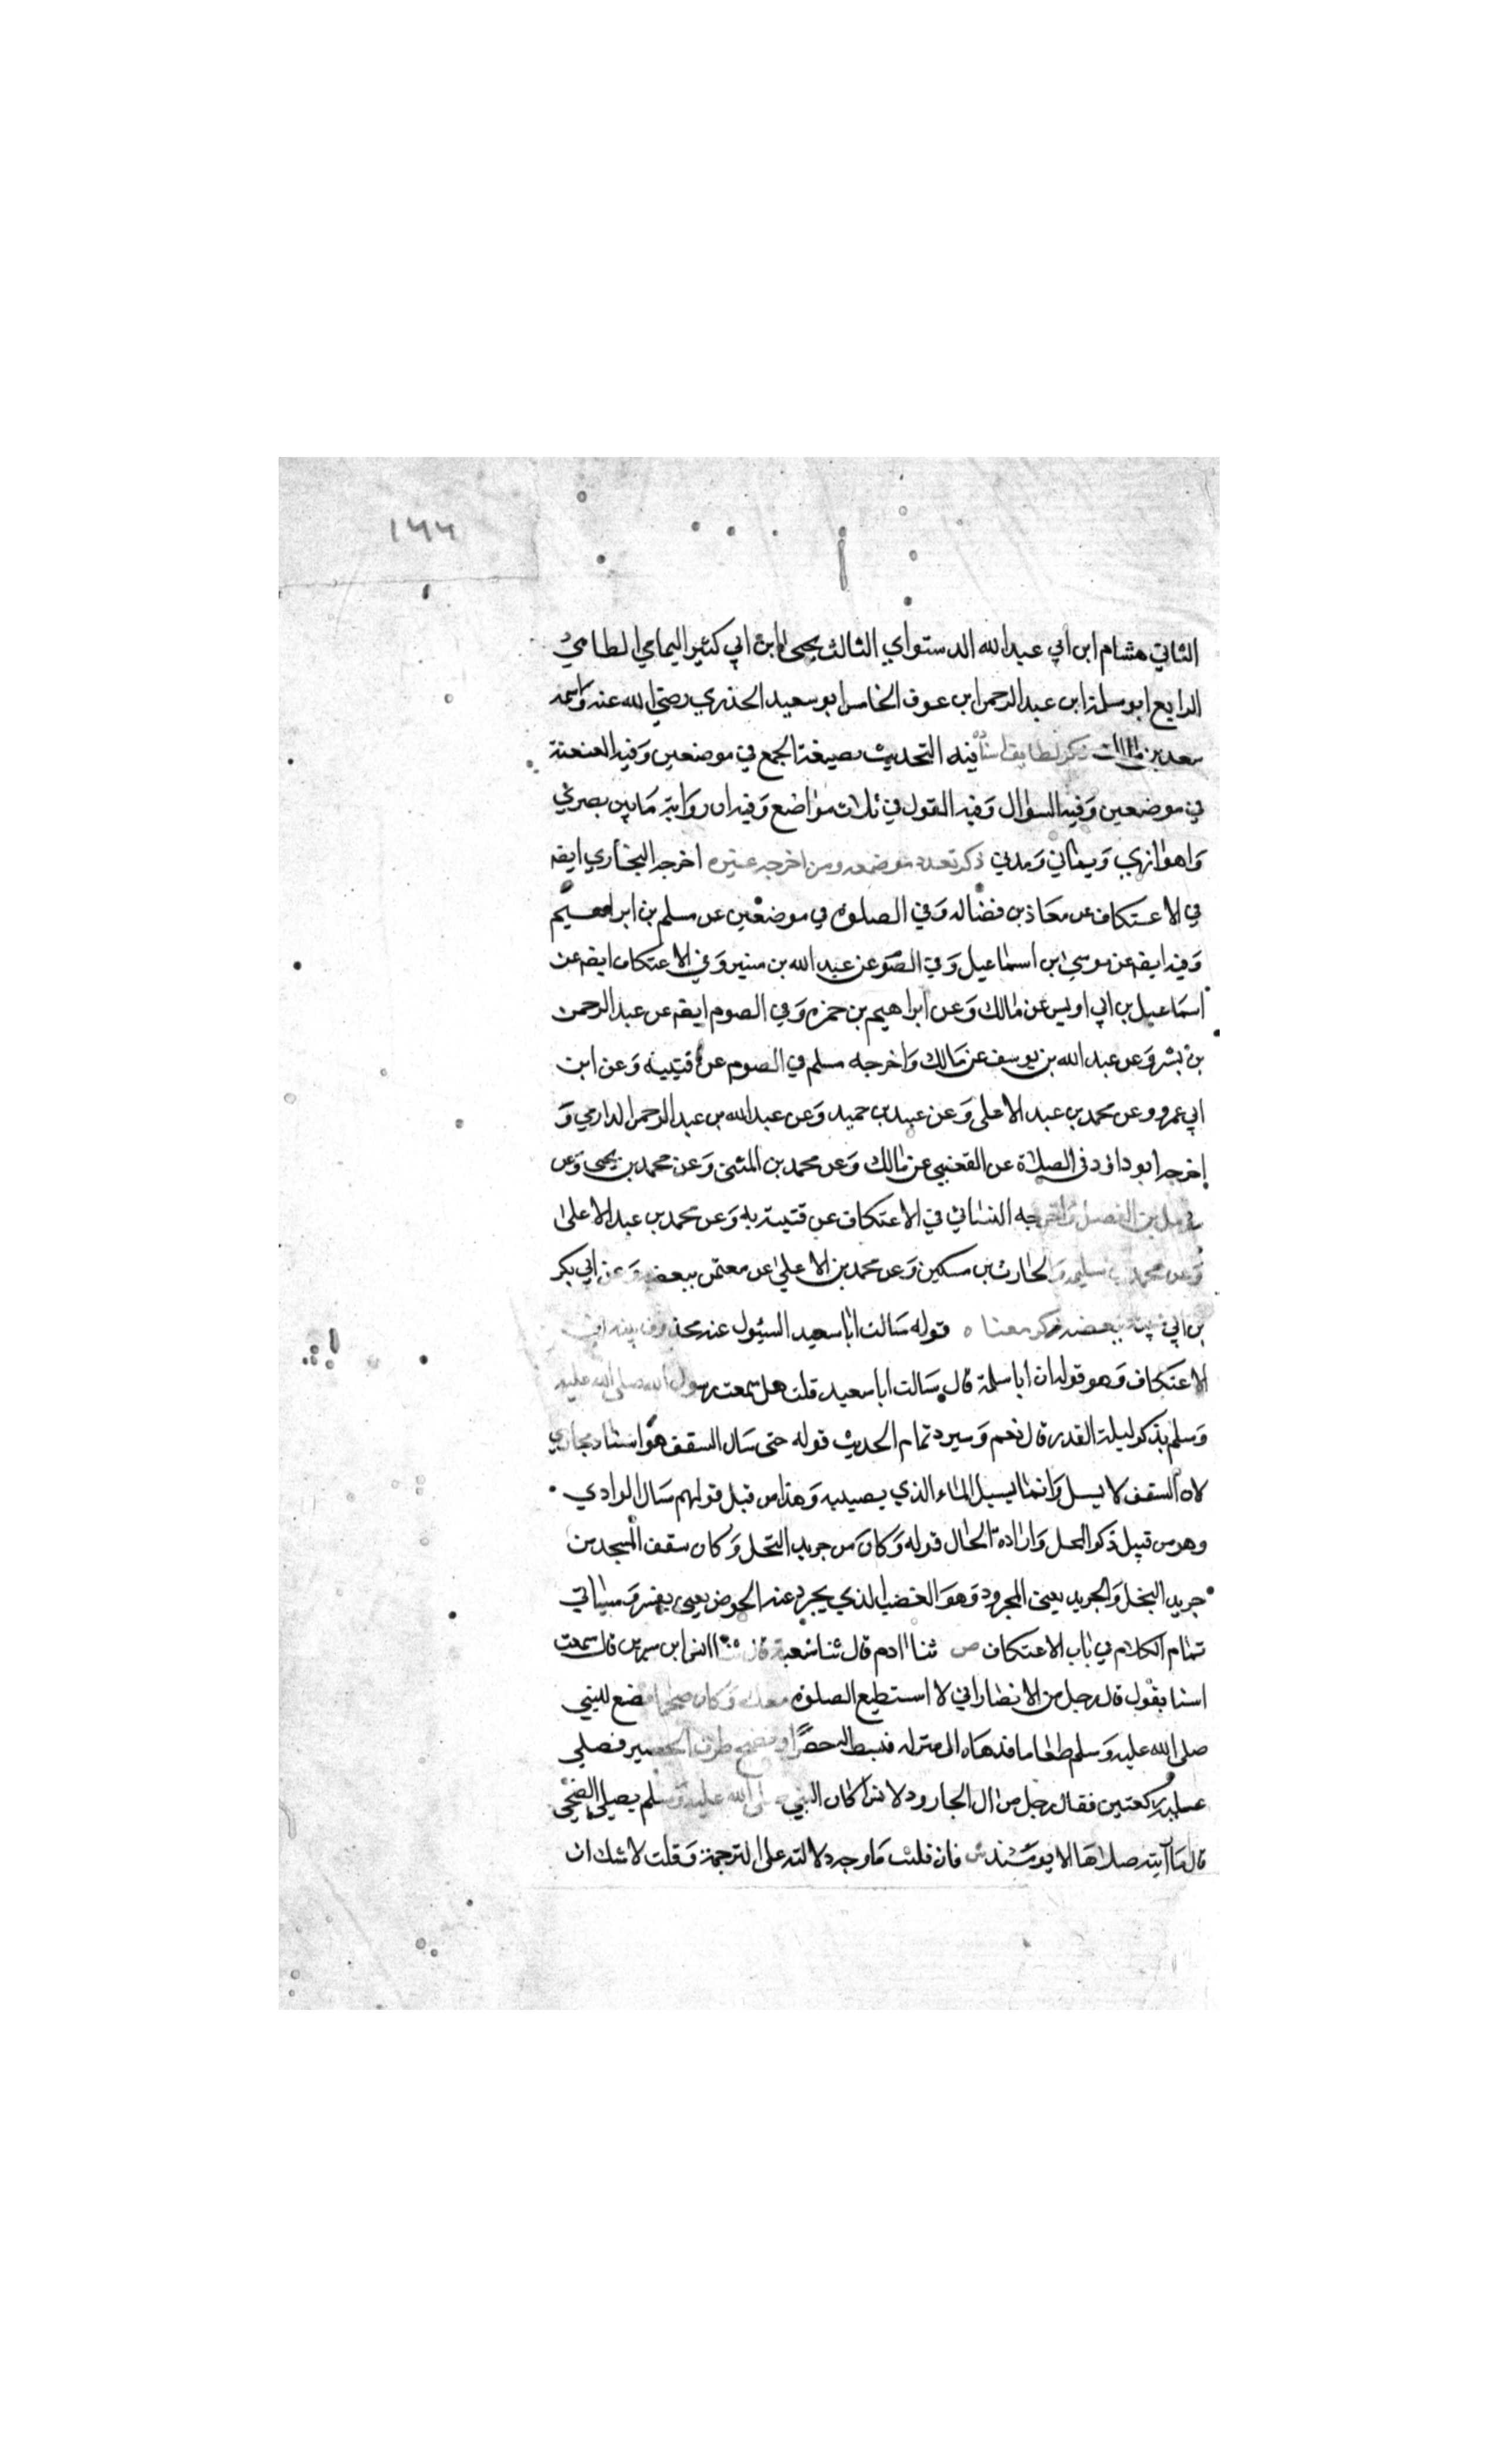 ١٦٦
الثاني هشام ابن ابي عبد الله الدستواي الثالث يحيى ابن ابي كثير اليمامي الطامي
الرابع ابو سلمة ابن عبد الرحمن ابن عوف الخامس ابو سعيد الخذري رضي الله عنه واسمه
سعد بن مالك ذكر لطايف اسناده فيه التحديث بصيغة الجمع في موضعين وفيه العنعنة
في موضعين وفيه السؤال وفيه القول في ثلاث مواضع وفيه ان رواته ما بين بصري
واهوازي ويماني ومدني ذكر تعدد موضعه ومن اخرجه غيره اخرجه البخاري ايضه
في الاعتكاف عن معاذ بن فضاله وفي الصلوه في موضعين عن مسلم بن ابراهيم
وفيه ايضه عن موسي ابن اسماعيل وفي الصو عن عبد الله بن منير وفي الاعتكاف ايضه عن
اسماعيل بن ابي اويس عن مالك وعن ابراهيم بن حمزه وفي الصوم ايضه عن عبد الرحمن
بن بشر وعن عبد الله بن يوسف عن مالك واخرجه مسلم في الصوم عن قتيبه وعن ابن
ابي عمرو وعن محمد بن عبد الاعلى وعن عبد بن حميد وعن عبد الله بن عبد الرحمن الدارمي و
اخرجه ابو داود في الصلاة عن القعنبي عن مالك وعن محمد بن المثنى وعن محمد بن يحيى وعن
بن الفضل واخرجه النسائي في الاعتكاف عن قتيبة به وعن محمد بن عبد الاعلى
وعن محمد بن سليمه والحارث بن مسكين وعن محمد بن الاعلى عن معتمر ببعضه وعن ابي بكر
بن ابي شيبة ببعضه ذكر معناه قوله سالت ابا سعيد السئول عنه محذوف بينه في
الاعتكاف وهو قوله ان ابا سلمة قال سالت ابا سعيد قلت هل سمعت رسول الله صلى الله عليه
وسلم يذكر ليلة القدر قال نعم وسيرد تمام الحديث قوله حتى سال السقف هو اسناد مجازي
لان السقف لا يسيل وانما يسيل الماء الذي يصيبه وهذا من قبل قولهم سال الوادي
وهو من قبيل ذكر المحل وارادة الحال قوله وكان من جريد النخل وكان سقف المسجد من
جريد النخل والجريد بمعنى المجرود وهو القضيب الذي يجرد عنه الخوص يعني يقشر وسياتي
تمام الكلام في باب الاعتكاف ص ثنا ادم قال ثنا شعبة قال ثنا انس ابن سيرين قال سمعت
انسا يقول قال رجل من الانصار اني لا استطيع الصلوه معك وكان ضخما فصنع للنبي
صلى الله عليه وسلم طعاما فدعاه الى منزله فبسط له حصيرا ونضح طرف الحصير فصلى
عليه ركعتين فقال رجل من ال الجارود لانس اكان النبي صلى الله عليه وسلم يصلي الضحى
قال ما رايته صلاها الا يومئذ ش فان قلت ما وجه دلالته على الترجمة وقلت لا شك ان